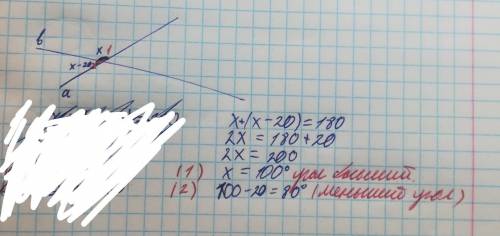 в
x 1
x-20 2
a
x+(x-20)=180
2x = 180+20
2x = 200
(1) x = 100° угол больший
(2) 100-20=80° (меньший угол)